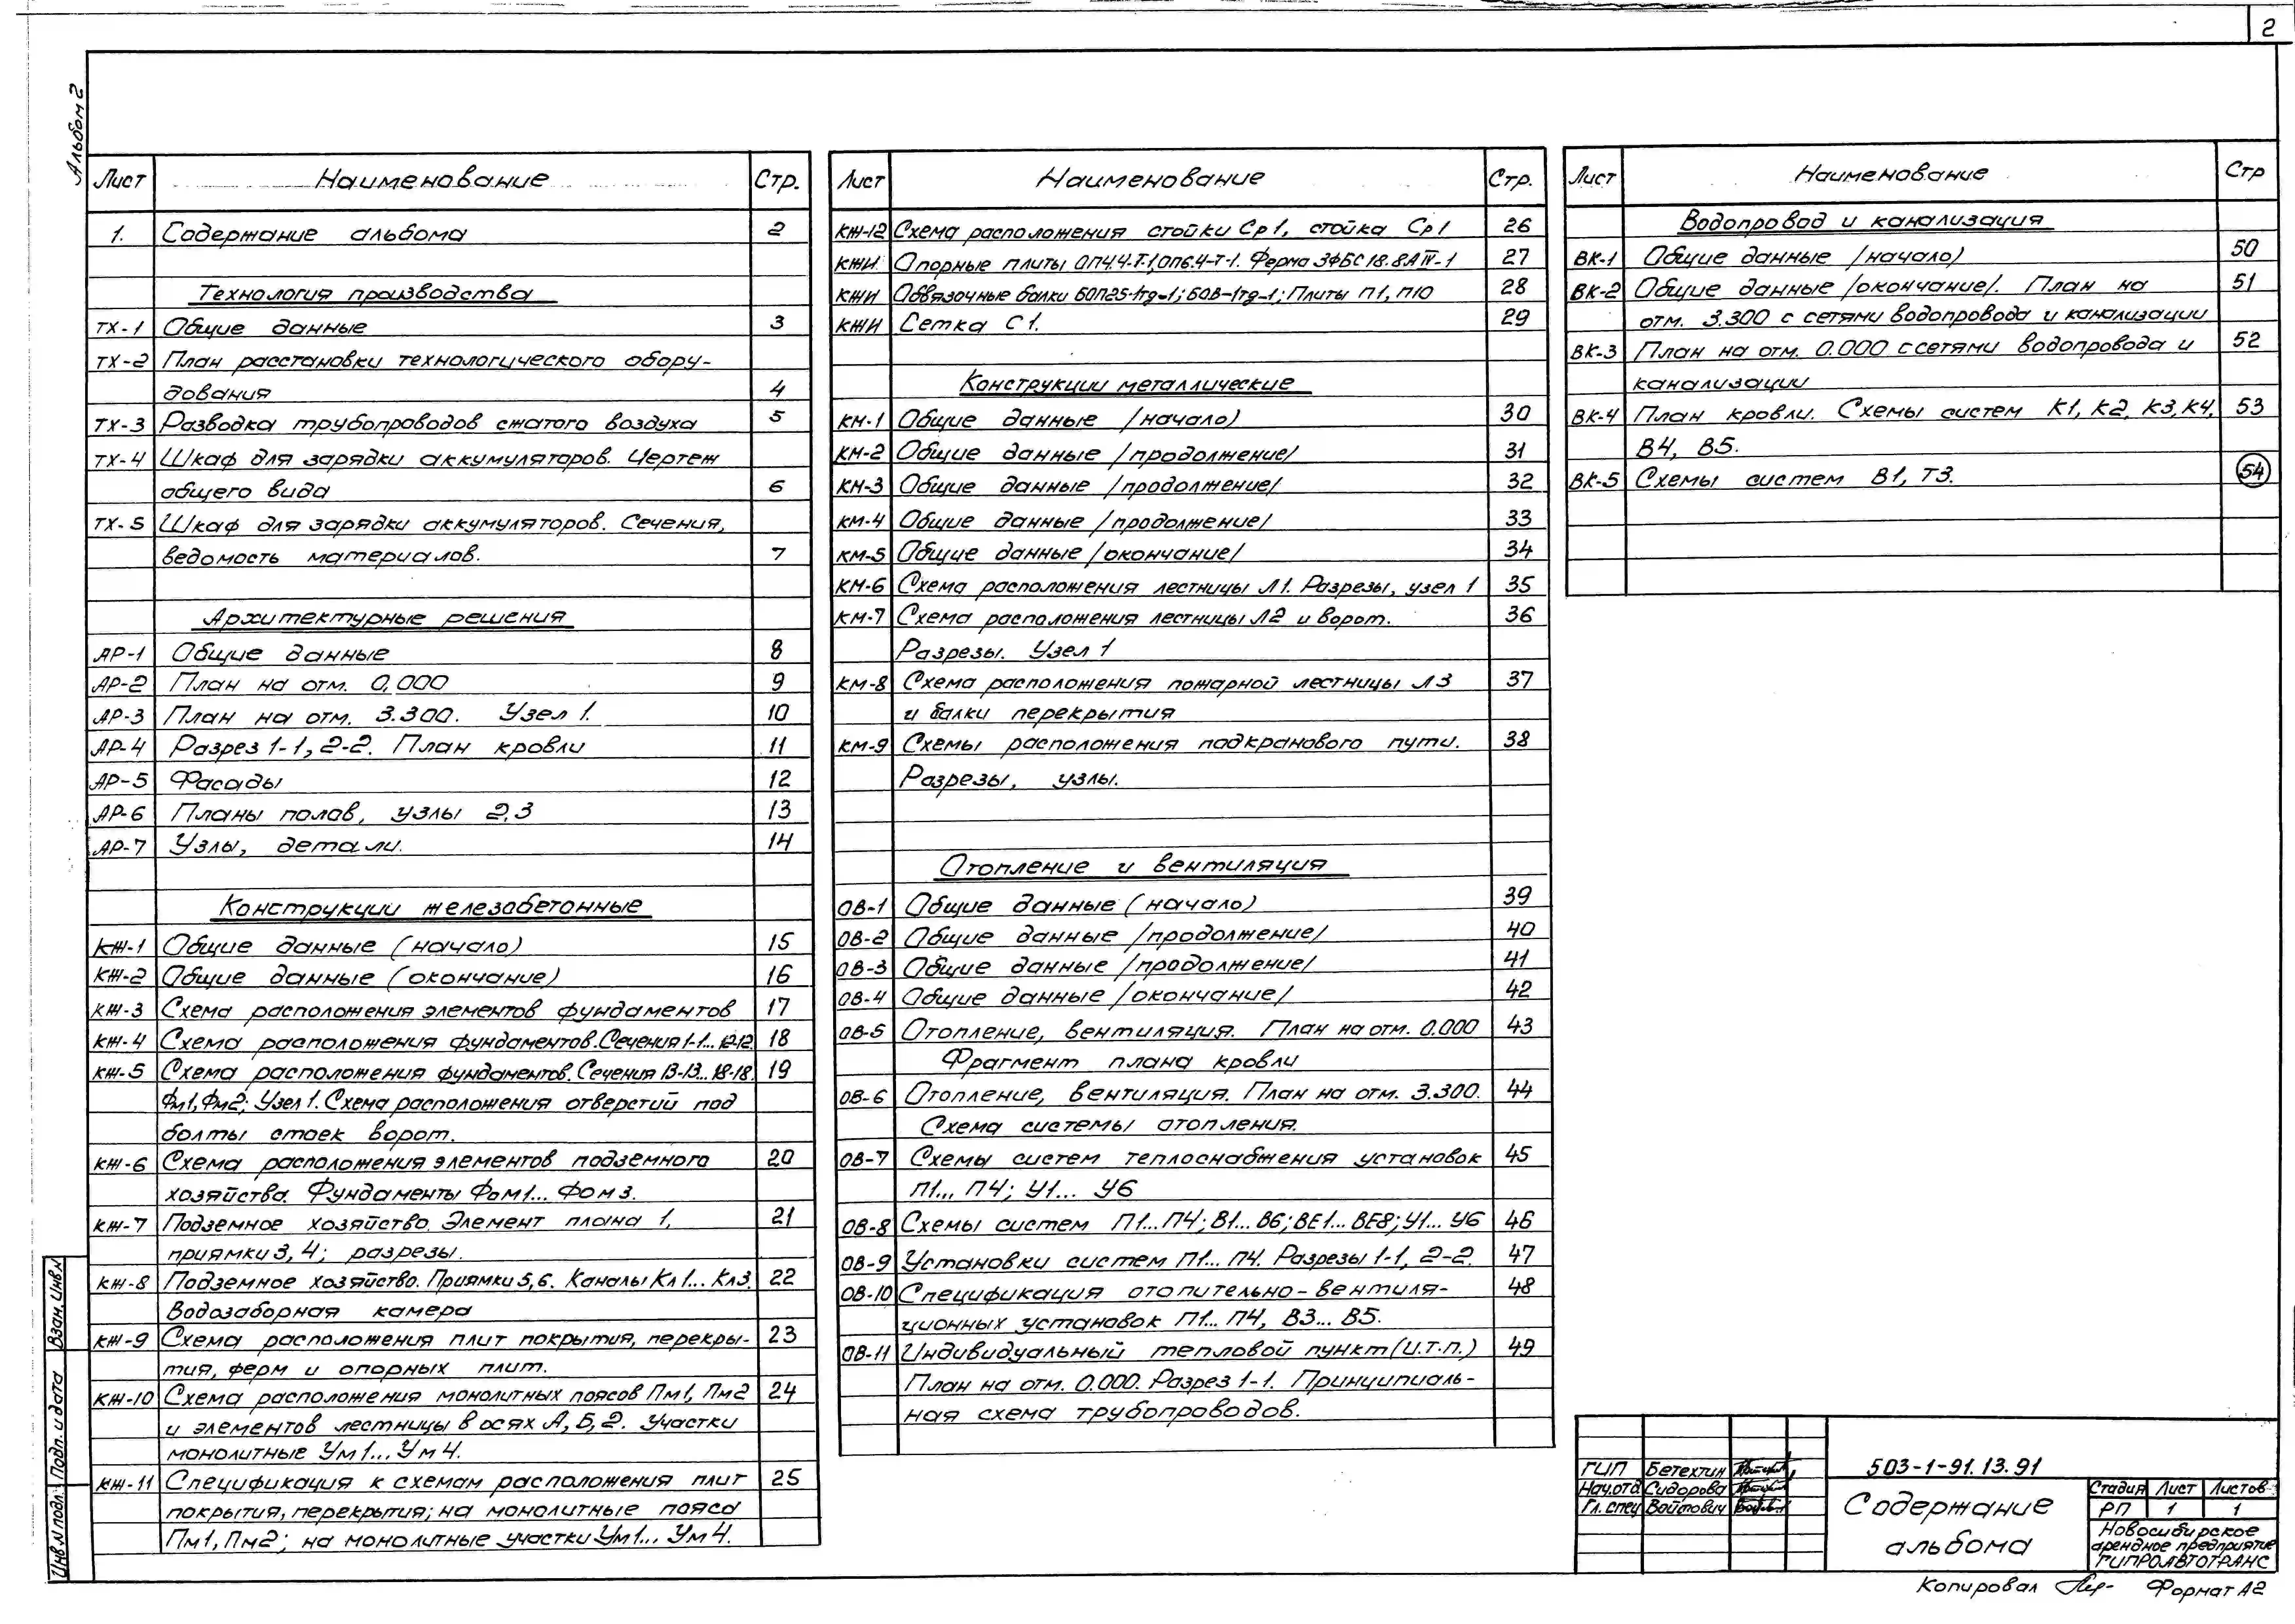 2
Альбом 2
Лист Наименование Стр.
1. Содержание альбома 2
Технология производства
ТХ-1 Общие данные 3
ТХ-2 План расстановки технологического обору-
дования 4
ТХ-3 Разводка трубопроводов сжатого воздуха 5
ТХ-4 Шкаф для зарядки аккумуляторов. Чертеж
общего вида 6
ТХ-5 Шкаф для зарядки аккумуляторов. Сечения,
ведомость материалов. 7
Архитектурные решения
АР-1 Общие данные 8
АР-2 План на отм. 0,000 9
АР-3 План на отм. 3.300. Узел 1. 10
АР-4 Разрез 1-1, 2-2. План кровли 11
АР-5 Фасады 12
АР-6 Планы полов, узлы 2,3 13
АР-7 Узлы, детали. 14
Конструкции железобетонные
КЖ-1 Общие данные (начало) 15
КЖ-2 Общие данные (окончание) 16
КЖ-3 Схема расположения элементов фундаментов 17
КЖ-4 Схема расположения фундаментов. Сечения 1-1... 12-12. 18
КЖ-5 Схема расположения фундаментов. Сечения 13-13... 18-18. 19
Фм1, Фм2; Узел 1. Схема расположения отверстий под
болты стоек ворот.
КЖ-6 Схема расположения элементов подземного 20
хозяйства. Фундаменты Фом1... Фом3.
КЖ-7 Подземное хозяйство. Элемент плана 1, 21
приямки 3, 4; разрезы.
КЖ-8 Подземное хозяйство. Приямки 5,6. Каналы Кл1... Кл3. 22
Водозаборная камера
КЖ-9 Схема расположения плит покрытия, перекры- 23
тия, ферм и опорных плит.
КЖ-10 Схема расположения монолитных поясов Пм1, Пм2 24
и элементов лестницы в осях А, Б, 2. Участки
монолитные Ум1... Ум4.
КЖ-11 Спецификация к схемам расположения плит 25
покрытия, перекрытия; на монолитные пояса
Пм1, Пм2; на монолитные участки Ум1... Ум4.
Лист Наименование Стр.
КЖ-12 Схема расположения стойки Ср1, стойка Ср1 26
КЖИ Опорные плиты ОП4.4-Т-1, ОП6.4-Т-1. Ферма 3ФБС18.8АIV-1 27
КЖИ Обвязочные балки БОП25-1тд-1; БОВ-1тд-1; Плиты П1, П10 28
КЖИ Сетка С1. 29
Конструкции металлические
КМ-1 Общие данные /начало) 30
КМ-2 Общие данные /продолжение/ 31
КМ-3 Общие данные /продолжение/ 32
КМ-4 Общие данные /продолжение/ 33
КМ-5 Общие данные /окончание/ 34
КМ-6 Схема расположения лестницы Л1. Разрезы, узел 1 35
КМ-7 Схема расположения лестницы Л2 и ворот. 36
Разрезы. Узел 1
КМ-8 Схема расположения пожарной лестницы Л3 37
и балки перекрытия
КМ-9 Схемы расположения подкранового пути. 38
Разрезы, узлы.
Отопление и вентиляция
ОВ-1 Общие данные (начало) 39
ОВ-2 Общие данные /продолжение/ 40
ОВ-3 Общие данные /продолжение/ 41
ОВ-4 Общие данные /окончание/ 42
ОВ-5 Отопление, вентиляция. План на отм. 0.000 43
Фрагмент плана кровли
ОВ-6 Отопление, вентиляция. План на отм. 3.300. 44
Схема системы отопления.
ОВ-7 Схемы систем теплоснабжения установок 45
П1... П4; У1... У6
ОВ-8 Схемы систем П1... П4; В1... В6; ВЕ1... ВЕ8; У1... У6 46
ОВ-9 Установки систем П1... П4. Разрезы 1-1, 2-2. 47
ОВ-10 Спецификация отопительно-вентиля- 48
ционных установок П1... П4, В3... В5.
ОВ-11 Индивидуальный тепловой пункт (И.Т.П.) 49
План на отм. 0.000. Разрез 1-1. Принципиаль-
ная схема трубопроводов.
Лист Наименование Стр
Водопровод и канализация
ВК-1 Общие данные /начало) 50
ВК-2 Общие данные /окончание/. План на 51
отм. 3.300 с сетями водопровода и канализации
ВК-3 План на отм. 0.000 с сетями водопровода и 52
канализации
ВК-4 План кровли. Схемы систем К1, К2, К3, К4, 53
В4, В5.
ВК-5 Схемы систем В1, Т3. 54
Взам. инв.N
Подп. и дата
Инв.N подл.
ГИП Бетехтин
Нач.отд Сидорова
Гл. спец Войтович
503-1-91.13.91
Содержание
альбома
Стадия Лист Листов
РП 1 1
Новосибирское
арендное предприятие
ГИПРОАВТОТРАНС
Копировал Формат А2